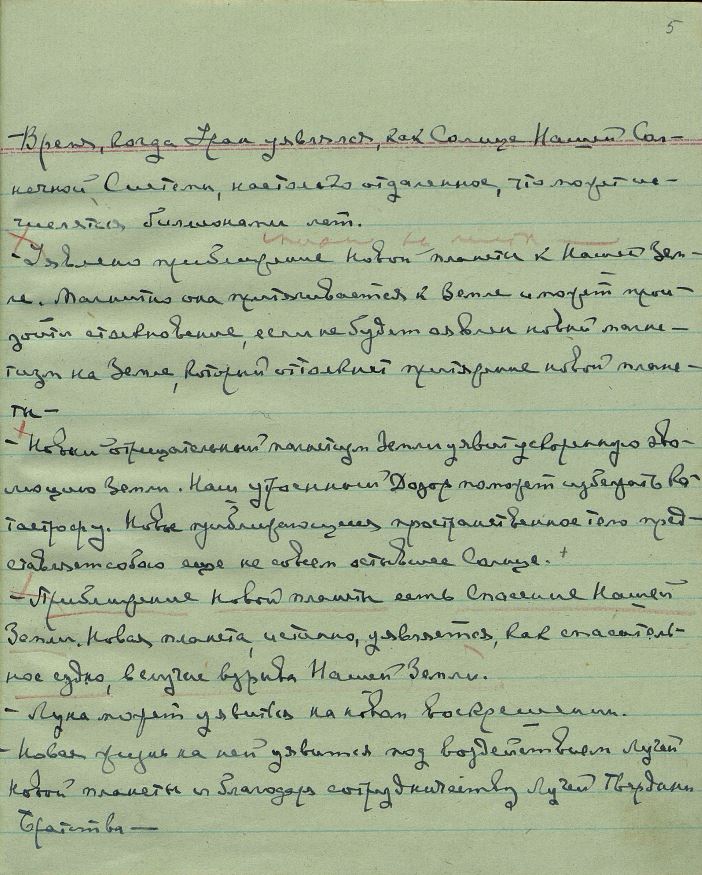 5
— Время, когда Уран уявлялся, как Солнце Нашей Сол-
нечной Системы, настолько отдаленное, что может ис-
числятся биллионами лет.
— Уявлено приближение Новой планеты к Нашей Зем-
ле. Магнитно она притягивается к Земле и может прои-
зойти столкновение, если не будет явлен новый магне-
тизм на Земле, который оттолкнет притяжение новой плане-
ты —
— Новый отрицательный магнетизм Земли уявит ускоренную эво-
люцию Земли. Наш утроенный Дозор поможет избежать ка-
тастрофу. Новое приближающееся пространственное тело пред-
ставляет собою еще не совсем остывшее Солнце. +
— Приближение Новой планеты есть Спасение Нашей
Земли. Новая планета, истинно, уявляется, как спаситель-
ное судно, в случае взрыва Нашей Земли.
— Луна может уявиться на новом воскрешении.
— Новая жизнь на ней уявится под воздействием Лучей
Новой планеты и благодаря сотрудничеству Лучей Твердыни
Братства —